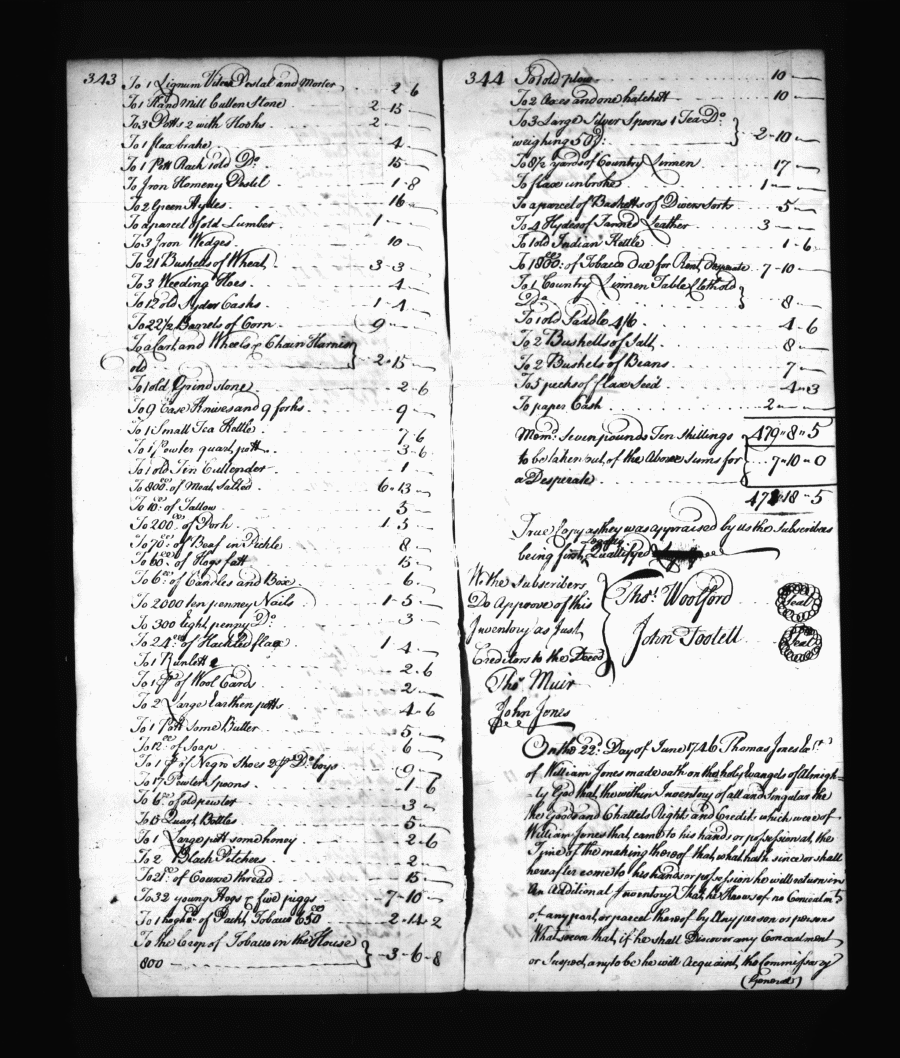 343
To 1 Lignum Vitea Pestal and Morter 2-6
To 1 Hand Mill Cullen Stone 2-15
To 3 Potts 2 with Hooks 2
To 1 flax brake 4
To 1 Pott Rack 1 old Do 15
To Iron Homeny Pestel 1-8
To 2 Green Hydes 16
To a parcel of old Lumber 1
To 3 Iron Wedges 10
To 21 Bushells of Wheat 3-3
To 3 Weeding Hoes 4
To 12 old Syder Casks 1-4
To 22 1/2 Barrels of Corn 9
To a Cart and Wheels & Chain Harness
old 2-15
To 1 old Grindstone 2-6
To 9 Case Knives and 9 forks 9
To 1 Small Tea Kettle 7-6
To 1 Pewter quart pott 3-6
To 1 old Tin Cullender 1
To 800 of Meat Salted 6-13
To 10 of Tallow 5
To 200 of Pork 1-5
To 70 of Beaf in Pickle 8
To 60 of Hogs fatt 15
To 6 of Candles and Box 6
To 2000 ten penney Nails 1-5
To 300 Eight penny Do 3
To 24 of Hackled flax 1-4
To 1 Runlett 2-6
To 1 pr of Wool Cards 2
To 2 Large Earthen potts 4-6
To 1 Pott Some Butter 5
To 12 of Soap 6
To 1 pr of Negro Shoes 2 pr Do boys 9
To 17 Pewter Spoons 1-6
To 6 of old pewter 3
To 15 Quart Bottles 5
To 1 Large pott some honey 2-6
To 2 Black Pitchers 2
To 2 of Course thread 15
To 32 young Hogs & five piggs 7-10
To 1 hoghd of Packt Tobacco 650 2-14-2
To the Crop of Tobacco in the House
800 3-6-8
344
To 1 old plow 10
To 2 Axes and one hatchett 10
To 3 Large Silver Spoons 1 Tea Do
weighing 2-10
To 8 1/2 yards of Country Linnen 17
To flax unbroke 1
To a parcel of Basketts of Divers Sorts 5
To 4 Hydes of Tanned Leather 3
To 1 old Indian Kettle 1-6
To 1800 of Tobacco due for Rent Desperate 7-10
To 1 Country Linnen Table Cloth old
Do 8
To 1 old Saddle 4/6 4-6
To 2 Bushells of Salt 8
To 2 Bushels of Beans 7
To 5 pecks of flax Seed 4-3
To paper Cash 2
Mom. Seven pounds Ten Shillings 479"8"5
to be taken out of the Above Sums for 7-10-0
a Desperate
471-18-5
True Copy as they was appraised by us the Subscribers
being first Legally Quallifyed
We the Subscribers
Do Approove of this
Inventory as Just
Creditors to the Deced
Thos. Woolford Seal
John Tootell Seal
Thos Muir
John Jones
On the 22d Day of June 1746 Thomas Jones Exr
of William Jones made oath on the holy Evangels of Almigh-
-ty God that the within Inventory of all and Singular the
the Goods and Chattels Rights and Credits which were of
William Jones that came to his hands or possession at the
Time of the making thereof that what hath since or shall
hereafter come to his hands or possession he will return in
an Additional Inventory That he Knows of no Concealmt
of any part or parcel thereof by Any person or persons
Whatsoever that if he shall Discover any Concealment
or Suspect any to be he will Acquaint the Commissary
(General)